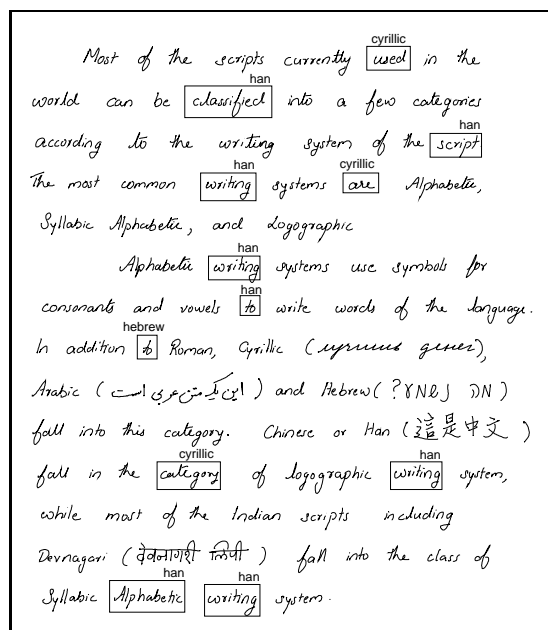 cyrillic
Most of the scripts currently used in the
han
world can be classified into a few categories
han
according to the writing system of the script
han cyrillic
The most common writing systems are Alphabetic,
Syllabic Alphabetic, and Logographic
han
Alphabetic writing systems use symbols for
han
consonants and vowels to write words of the language.
hebrew
In addition to Roman, Cyrillic (),
Arabic (این یک متن عربی است) and Hebrew ()
fall into this category. Chinese or Han (這是中文)
cyrillic han
fall in the category of logographic writing system,
while most of the Indian scripts including
Devnagari (देवनागरी लिपी) fall into the class of
han han
Syllabic Alphabetic writing system.